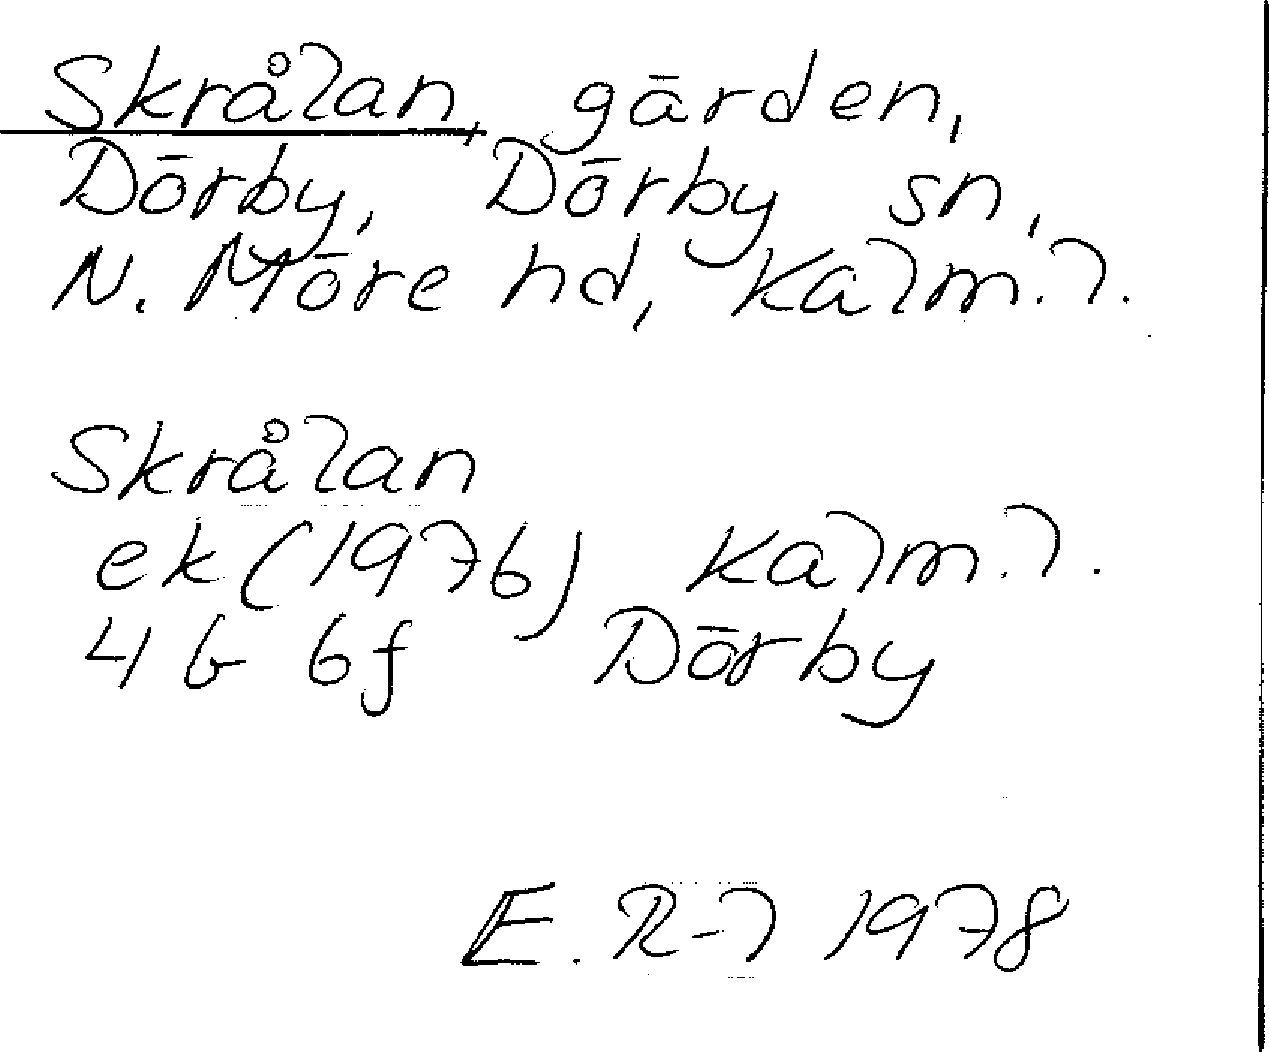 Skrålan, gärden,
Dörby, Dörby sn,
N. Möre hd, Kalm. l.
Skrålan
ek (1976) Kalm. l.
4 G 6f Dörby
E. R-l 1978